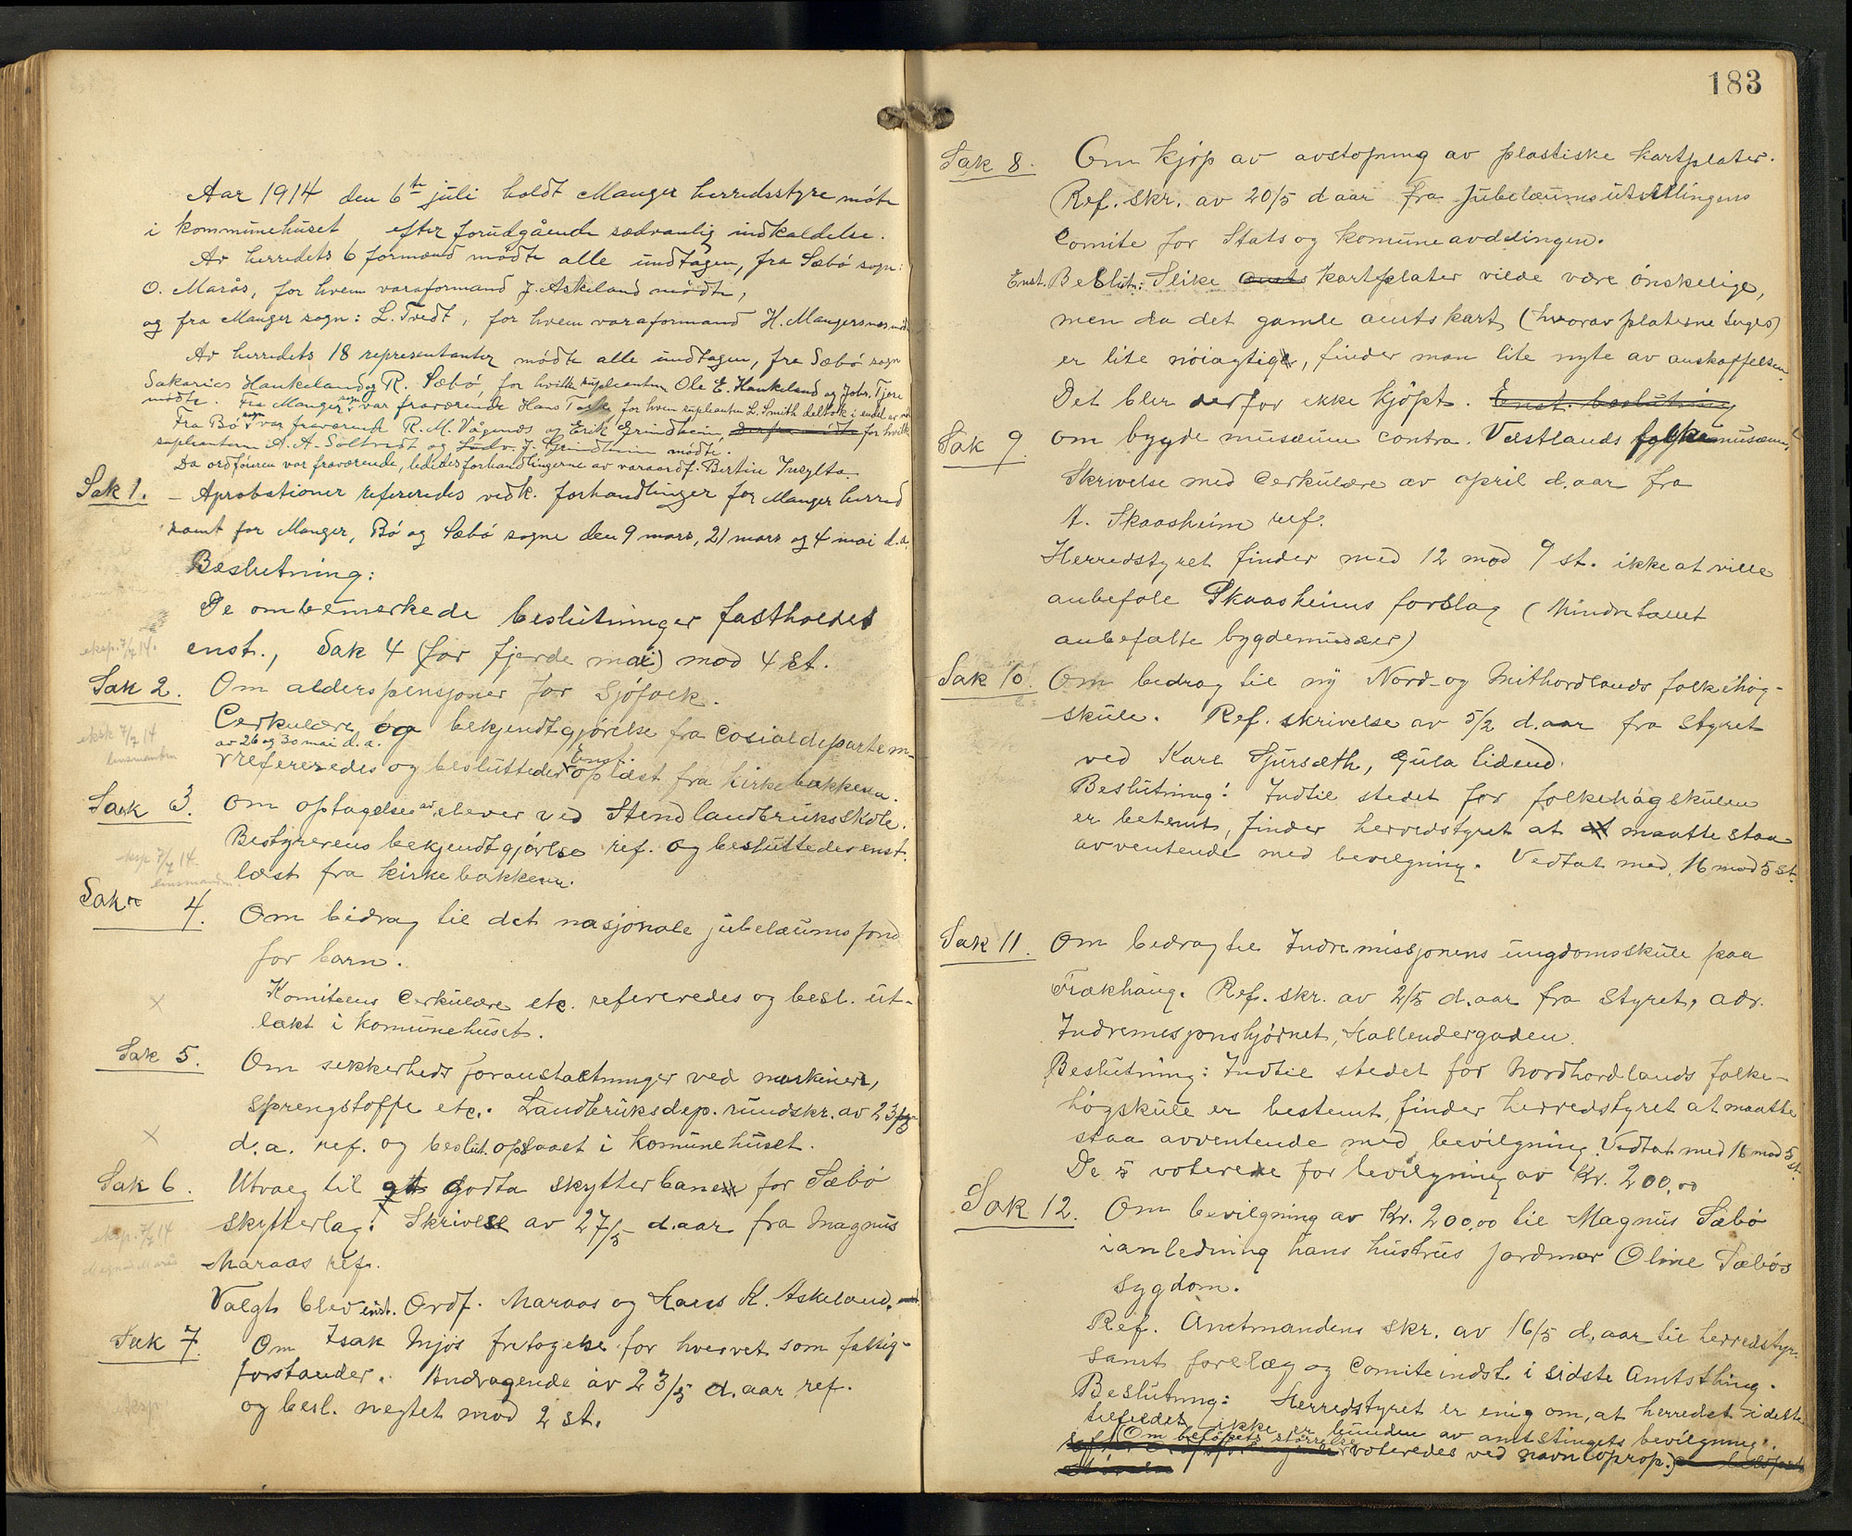 Aar 1914 den 6te juli holdt Manger herredsstyre møte
i kommunehuset efter forudgående sædvanlig indkaldelse.
Av herredets 6 formænd mødte alle undtagen, fra Sæbø sogn:
O. Marås, for hvem varaformand J. Askeland mødte,
og fra Manger sogn: L. Tvedt, for hvem varaformand H. Mangersnes mødte
Av herredets 18 representanter mødte alle undtagen, fra Sæbø sogn
Sakarias Haukeland og R. Sæbø, for hvilke supleanten Ole E. Haukeland og Johs. Tjore
mødte. Fra Manger sogn var fraværende Hans Toske, for hvem supleanten L. Smith deltok i endel av
Fra Bø sogn var fraværende R. M. Vågenes og Erik Grindheim, for hvilke
supleantene A. A. Soltvedt og Ludv. J. Grindheim mødte.
Da ordføreren var fraværende, lededes forhandlingerne av varaordf. Bertin Insylta.
Sak 1. – Aprobationer refereredes vedk. forhandlinger for Manger herred
samt for Manger, Bø og Sæbø sogne den 9 mars, 21 mars og 4 mai d.a.
Beslutning:
De ombemerkede beslutninger fastholdes
enst., Sak 4 (for fjerde mai) mod 4 st.
eksp. 7/7 14.
Sak 2. Om alderspensjoner for sjøfolk.
Cerkulære og bekjendtgjørelse fra Cosialdepartem-
av 26 og 30 mai d.a.
eksk 7/7 14
lensmanden
refereredes og besluttedes Enst. oplæst fra kirkebakkerne.
Sak 3. Om optagelse av elever ved Stend landbruksskole.
Bestyrerens bekjendtgjørlse ref. og besluttedes enst.
læst fra kirkebakkene.
eksp 7/7 14.
lensmanden
Sak 4. Om bidrag til det nasjonale jubelæumsfond
for barn.
Komiteens Cerkulære etc. refereredes og besl. ut-
lakt i komunehuset.
Sak 5. Om sikkerheds foranstaltninger ved maskiner,
sprengstoffe etc. Landbruksdep. rundskr. av 23/5
d.a. ref. og beslut. opslaaet i komunehuset.
Sak 6. Utvalg til at godta skytterbane for Sæbø
skytterlag. Skrivelse av 27/5 d.aar fra Magnus
Maraas ref.
eksp. 7/7 14
Magnus Marås
Valgt blev enst. Ordf. Maraas og Hans K. Askeland.
Sak 7. Om Isak Mjøs fritagelse for hvervet som fattig-
forstander. Andragende av 23/5 d.aar ref.
og besl. negtet mod 2 st.
eksp
183
Sak 8. Om kjøp av avstøpning av plastiske kartplater.
Ref. skr. av 20/5 d aar fra Jubelæumsutstillingens
Comite for Stats og komuneavdelingen.
Enst. Beslut: Slike kartplater vilde være ønskelige,
men da det gamle amtskart (hvorav platerne tages)
er lite nøiagtig, finder man lite nytte av anskaffelsen.
Det blir derfor ikke kjøpt. Enst. beslutning
Sak 9. Om bygdemusæum contra. Vestlands folkemusæum,
Skrivelse med Cerkulære av april d.aar fra
A. Skaasheim ref.
Herredstyret finder med 12 mod 9 st. ikke at ville
anbefale Skaasheims forslag (Mindretallet
anbefalte bygdemusæer)
Sak 10 Om bedrag til ny Nord- og Mithordlands folkehøg-
skule. Ref. skrivelse av 5/2 d.aar fra styret
ved Karl Gjursæth, Gula tidend.
Beslutning: Indtil stedet for folkehøgskulen
er betemt, finder herredstyret at maatte staa
avventende med bevilgning. Vedtat med 16 mod 5 st.
Sak 11. Om bedrag til Indremissjonens ungdomsskule paa
Frækhaug. Ref. skr. av 2/5 d.aar fra styret, adr.
Indremisjonshjørnet, Kallendergaden.
Beslutning: Indtil stedet for Nordhordlands folke-
høgskule er bestemt, finder herredstyret at maatte
staa avventende med bevilgning. Vedtat med 16 mod 5 st.
De 5 voterede for bevilgning av Kr. 200,00
Sak 12. Om bevilgning av Kr. 200,00 til Magnus Sæbø
i anledning hans hustrus jordmor Oline Sæbøs
sygdom.
Ref. Amtmandens skr. av 16/5 d.aar til herredstyr-
samt forelæg og Comiteindst. i sidste Amtsthing.
Beslutning: Herredstyret er enig om, at herredet i dette
tilfeldet ikke er bunden av amtstingets bevilgning.
(Om beløpets størrelse voteredes ved navneoprop.)